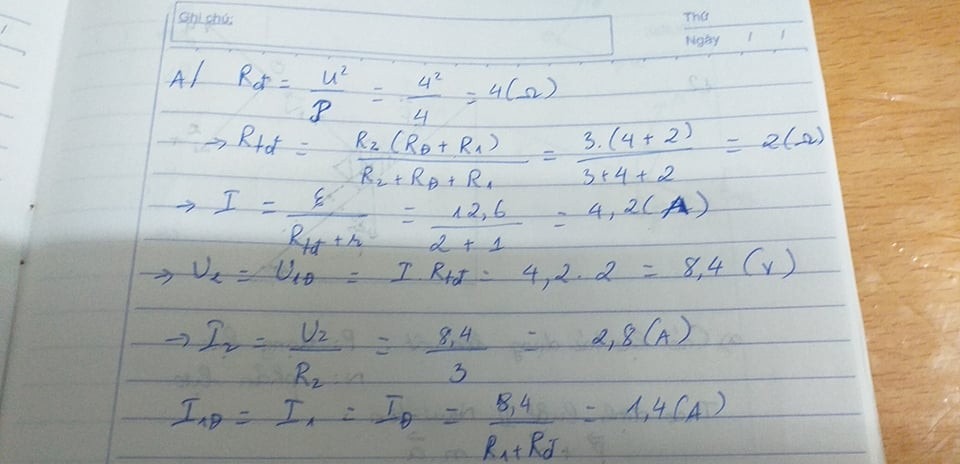 Ghi chú:
Thứ
Ngày / /
A/ Rđ = U²/P = 4²/4 = 4(Ω)
→ Rtđ = R2(RĐ + R1)/(R2 + RĐ + R1) = 3.(4+2)/(3+4+2) = 2(Ω)
→ I = ξ/(Rtđ + r) = 12,6/(2+1) = 4,2(A)
→ U2 = U1Đ = I Rtđ = 4,2.2 = 8,4 (V)
→ I2 = U2/R2 = 8,4/3 = 2,8(A)
I1Đ = I1 = IĐ = 8,4/(R1+Rđ) = 1,4(A)